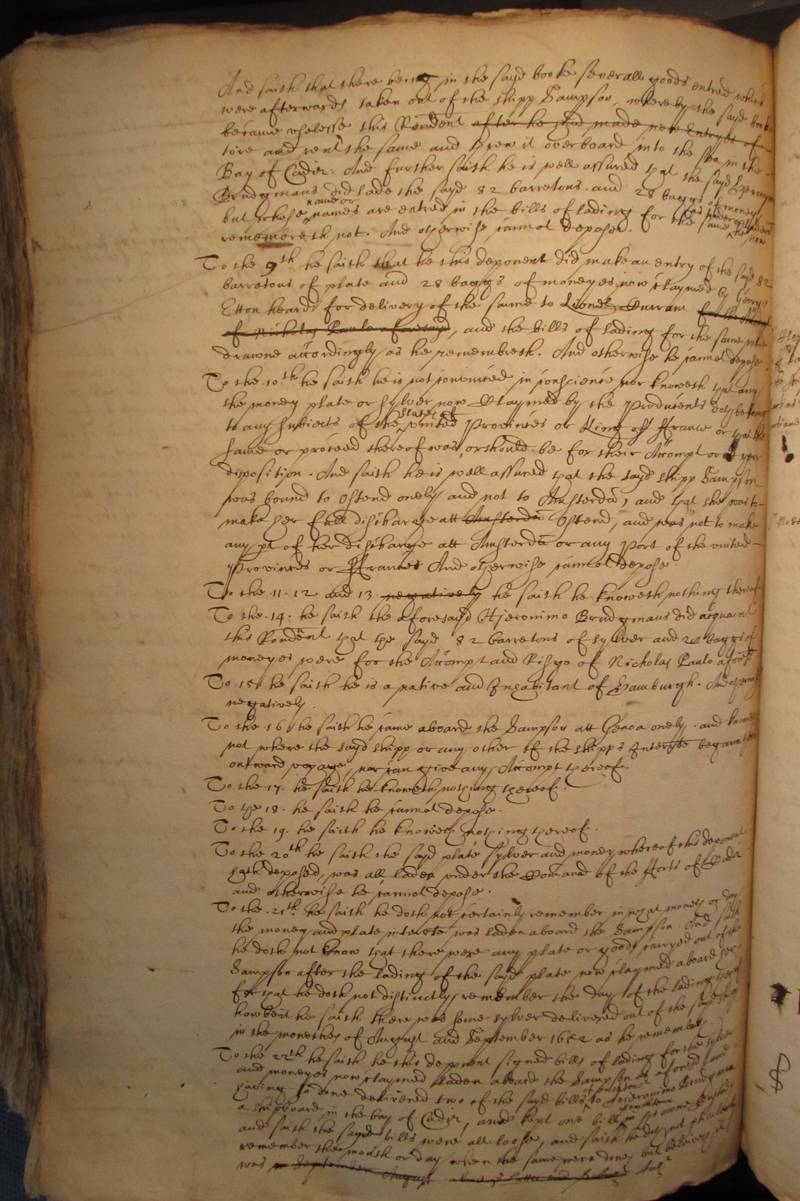 And saith that there being in the sayd booke severall goods entred which
were afterwards taken out of the shipp Sampson, whereby the sayd booke
became uselesse this Rendent after he had made new Entryes of
tore and rent the same and threw it overboard into the sea in the
Bay of Cadiz. And further saith he is well assured that the sayd
Brudgmans did lade the sayd 82 barretons and 28 baggs of moneyes
but whose name or names are entred in the bills of lading for the same he
remembreth not. And otherwise cannot depose.
To the 9th he saith that he this deponent did make an entry of the sayd 82
barretons of plate and 28 baggs of moneyes now claymed by
for delivery of the same to Lionel
of Nicholas Paulo aforesayd, and the bills of lading for the same were
drawne accordingly as he remembreth. And otherwise he cannot depose
To the 10th he saith he is not convinced in conscience nor knoweth that any
the money plate or sylver now claymed by the Producents doe belong
to any subiects of the States of the united Provinces or King of France or that the
same or proceed thereof was or should be for their Accompt or
disposition. And saith he is well assured that the sayd shipp Sampson
was bound to Ostend onely and not to Amsterdam, and that she was to
make her full discharge att Amsterdam Ostend, and was not to make
any pt of her discharge att Amsterdam or any Port of the united
Provinces or France And otherwise cannot depose
To the 11. 12 and 13 negatively he saith he knoweth nothing thereof
To the 14. he saith the aforesayd Hieronimo Brudgmans did acquaint
this Rendent that the sayd 82 barretons of sylver and 28 baggs of
moneyes were for the Accompt and Risgo of Nicholas Paulo aforesd
To 15th he saith he is a native and Inhabitant of Hamburgh. And
negatively.
To the 16 he saith he came aboard the Sampson att Genoa onely. and knoweth
not where the sayd shipp or any other of the shipps Interrte began their
outward voyage, nor can give any Accompt thereof.
To the 17. he saith he knoweth nothing thereof.
To the 18. he saith he cannot depose.
To the 19. he saith he knoweth nothing thereof.
To the 20th he saith the sayd plate sylver and money whereof this deponent
hath deposed, was all laden under the Comand of the fforts of Cadiz
and otherwise he cannot depose.
To the 21th. he saith he doth not certainly remember in what moneth or day
the money and plate interrte was laden aboard the Sampson. And saith
he doth not know that there were any plate or goods carryed out of the
Sampson after the lading of the sayd plate now claymed aboard her
for that he doth not distinctly remember the day of the lading
howbeit he saith there was some sylver delivered out of the
in the moneths of August and September 1652 as he remembreth
To the 22th he saith he this deponent signed bills of lading for the sylver
and moneyes now claymed laden aboard the Sampson aforesd and
having so done delivered two of the sayd bills to Hieronimo Brudgmans
a shipboard in the bay of Cadiz, and kept one bill
and saith the sayd bills were all loose, and saith he doth not
remember the month or day when the same were done, but beleeveth it
was in September August